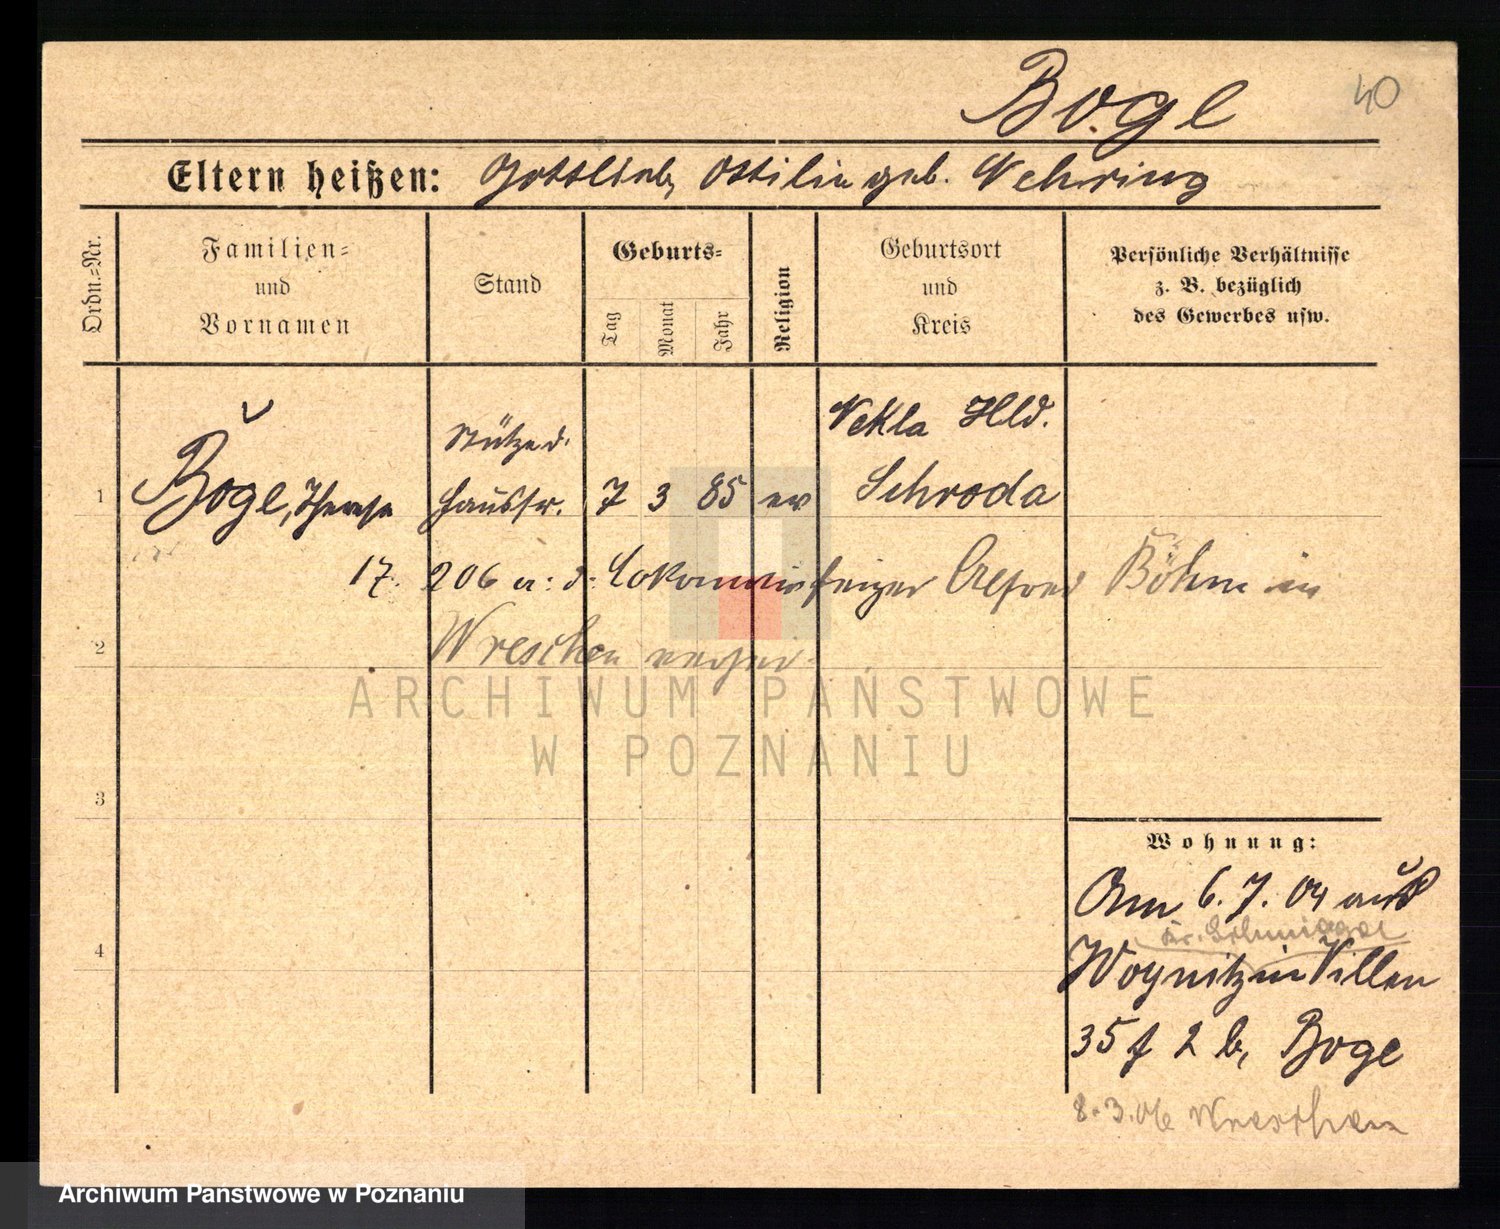 Boge
40
Eltern heißen: Gottlieb, Ottilie geb. Nehring
Ordn.-Nr.
Familien-
und
Vornamen
Stand
Geburts-
Tag
Monat
Jahr
Religion
Geburtsort
und
Kreis
Persönliche Verhältnisse
z. B. bezüglich
des Gewerbes usw.
Nekla Hld.
Stütze d.
1 Boge, Therese Hausfr. 7 3 85 ev Schroda
17. 206 a: d: Lokomotivheizer Alfred Böhm in
2 Wreschen verheir.
ARCHIWUM PAŃSTWOWE
W POZNANIU
3
Wohnung:
Am 6. 7. 04 aus
Kr. Schmiegel
4
Woynitz in Villen
35 f 2 b, Boge
8.3.06 Wreschen
Archiwum Państwowe w Poznaniu